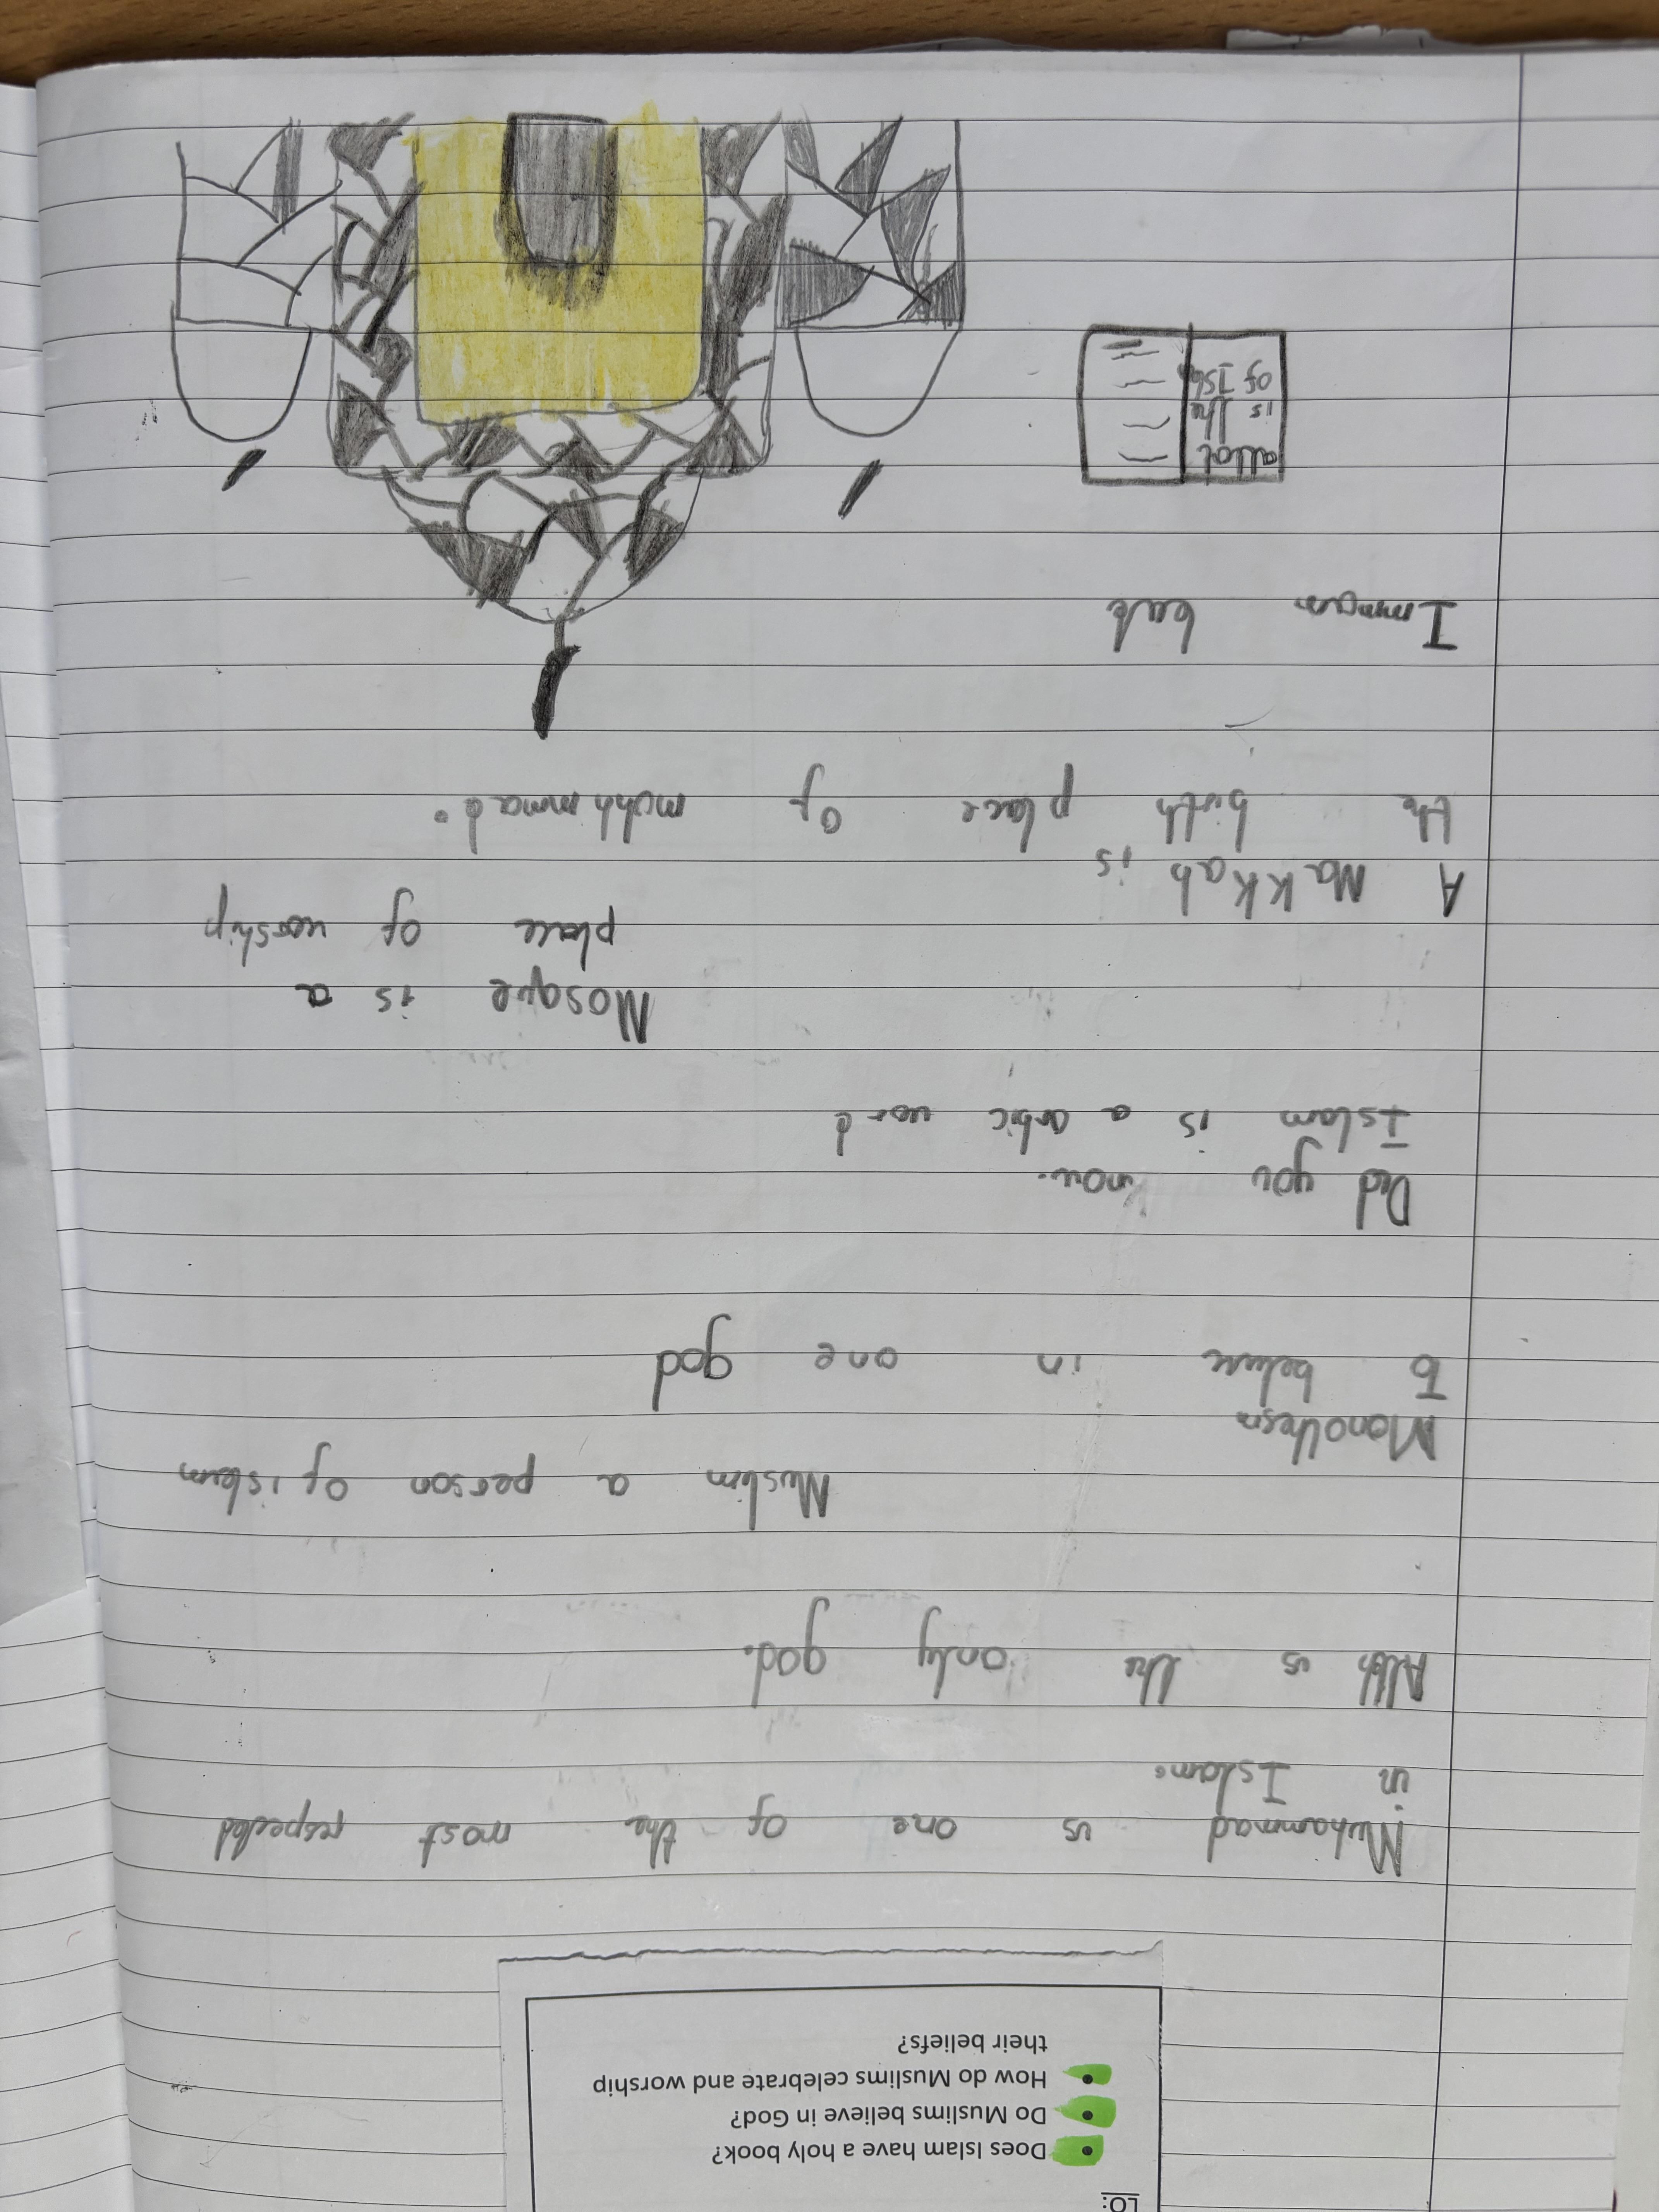 LO:
• Does Islam have a holy book?
• Do Muslims believe in God?
• How do Muslims celebrate and worship
their beliefs?
Muhammad is one of the most respected
in Islam.
Allh is the only god.
Muslim a person of islam
Monothesm
to beleve in one god
Did you know.
Islam is a arbic word
Mosque is a
place of worship
A Makkah is
the birth place of muhhmmad.
Imman
allat
is the
of